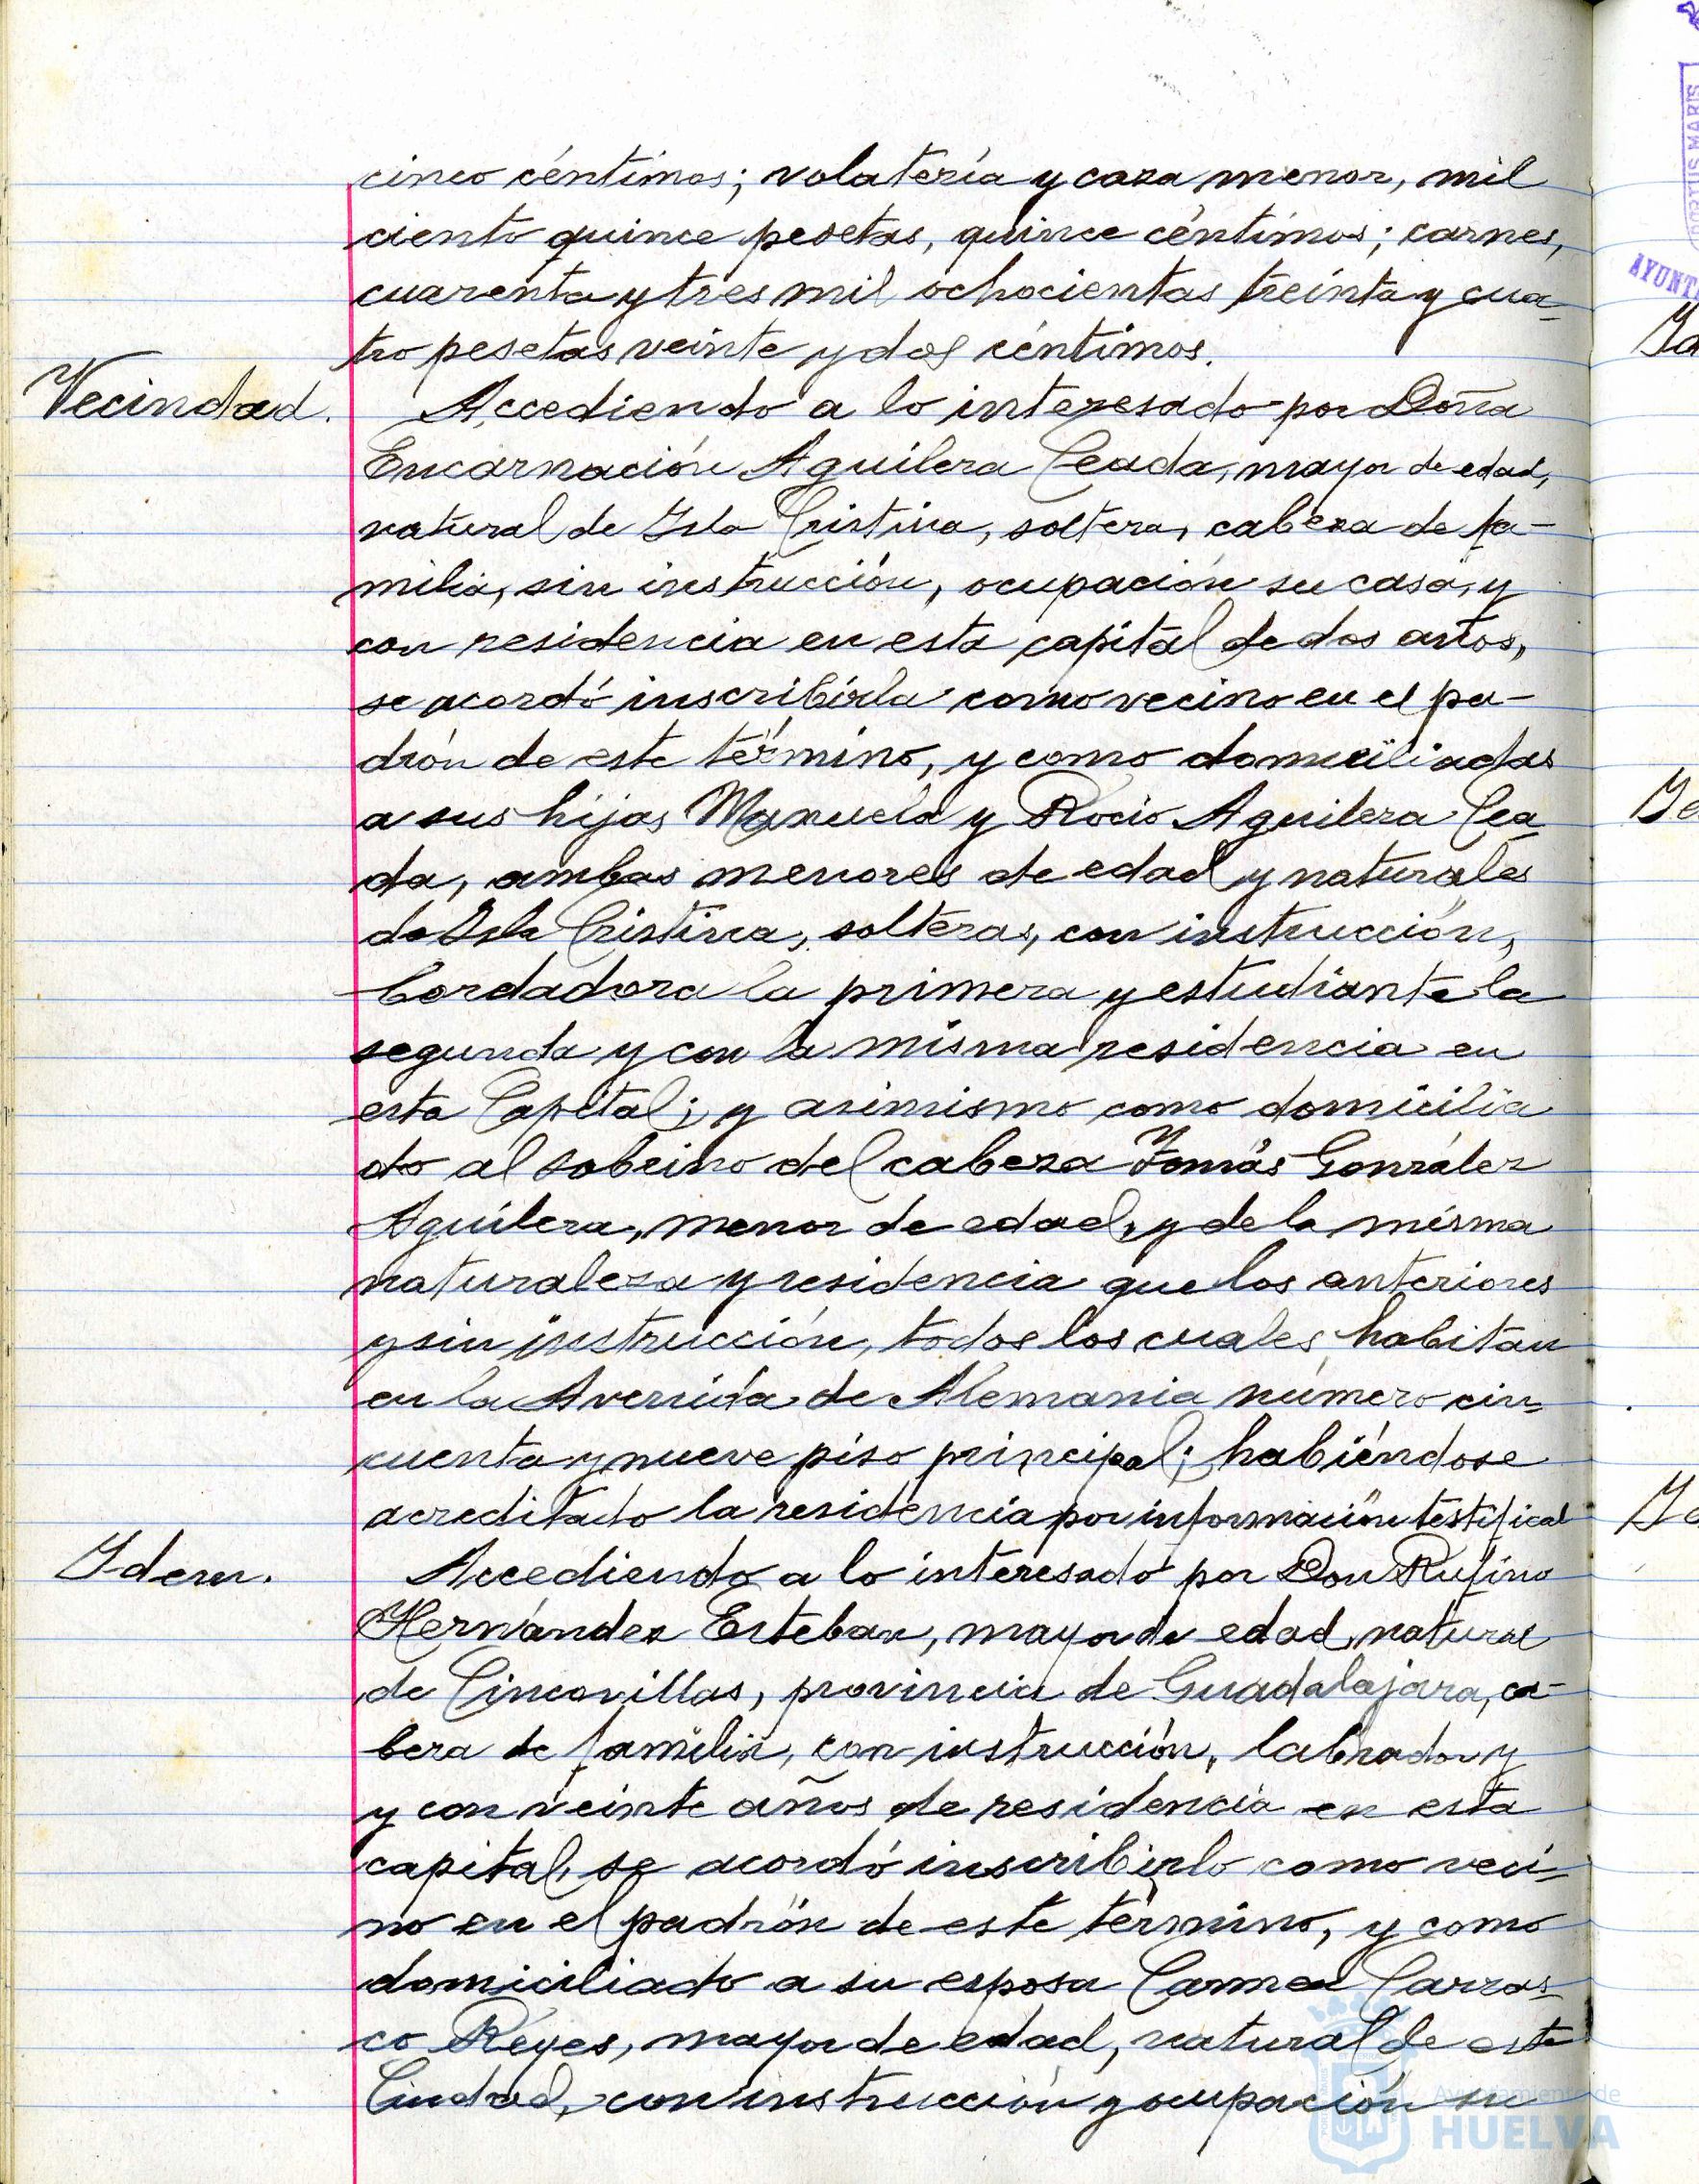 cinco céntimos; volatería y caza menor, mil
ciento quince pesetas, quince céntimos; carnes,
cuarenta y tres mil ochocientas treinta y cua-
tro pesetas veinte y dos céntimos.
Vecindad.
Accediendo a lo interesado por Doña
Encarnación Aguilera Ceada, mayor de edad,
natural de Isla Cristina, soltera, cabeza de fa-
milia, sin instrucción, ocupación su casa, y
con residencia en esta capital de dos años,
se acordó inscribirla como vecino en el pa-
drón de este término, y como domiciliadas
a sus hijas Manuela y Rocío Aguilera Cea-
da, ambas menores de edad y naturales
de Isla Cristina, solteras, con instrucción,
bordadora la primera y estudiante la
segunda y con la misma residencia en
esta Capital; y asimismo como domicilia
do al sobrino del cabeza Tomás González
Aguilera, menor de edad, y de la misma
naturaleza y residencia que los anteriores
y sin instrucción, todos los cuales habitan
en la Avenida de Alemania número cin-
cuenta y nueve piso principal; habiéndose
acreditado la residencia por información testifical
Idem.
Accediendo a lo interesado por Don Rufino
Hernández Esteban, mayor de edad, natural
de Cincovillas, provincia de Guadalajara, ca-
beza de familia, con instrucción, labrador y
y con veinte años de residencia en esta
capital, se acordó inscribirlo como veci-
no en el padrón de este término, y como
domiciliado a su esposa Carmen Carras-
co Reyes, mayor de edad, natural de esta
Ciudad, con instrucción y ocupación su
Ayuntamiento de
HUELVA